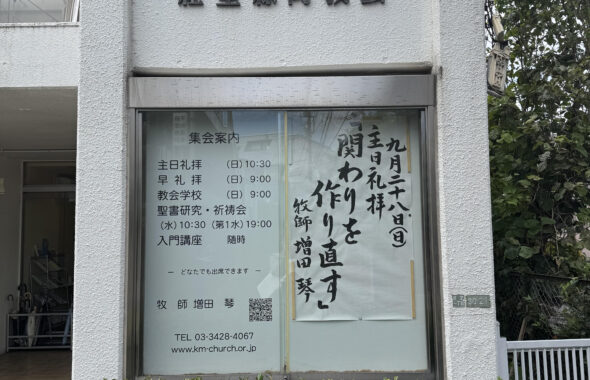 集会案内
主日礼拝 (日) 10:30
早礼拝 (日) 9:00
教会学校 (日) 9:00
聖書研究・祈祷会
(水) 10:30 (第1水) 19:00
入門講座 随時
― どなたでも出席できます ―
牧師 増田 琴
TEL 03-3428-4067
www.km-church.or.jp
九月二十八日(日)
主日礼拝
「関わりを
作り直す」
牧師 増田 琴